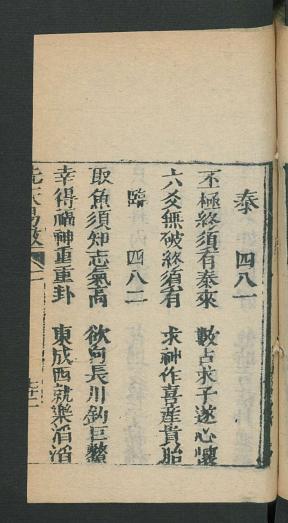 泰 四八一
丕極終須有泰來 數占求子遂心懷
六爻無破終須有 求神作喜産貴胎
臨 四八二
取魚須知志氣高 欲向長川釣巨鰲
幸得福神重重卦 東成西就樂滔滔
先天易數